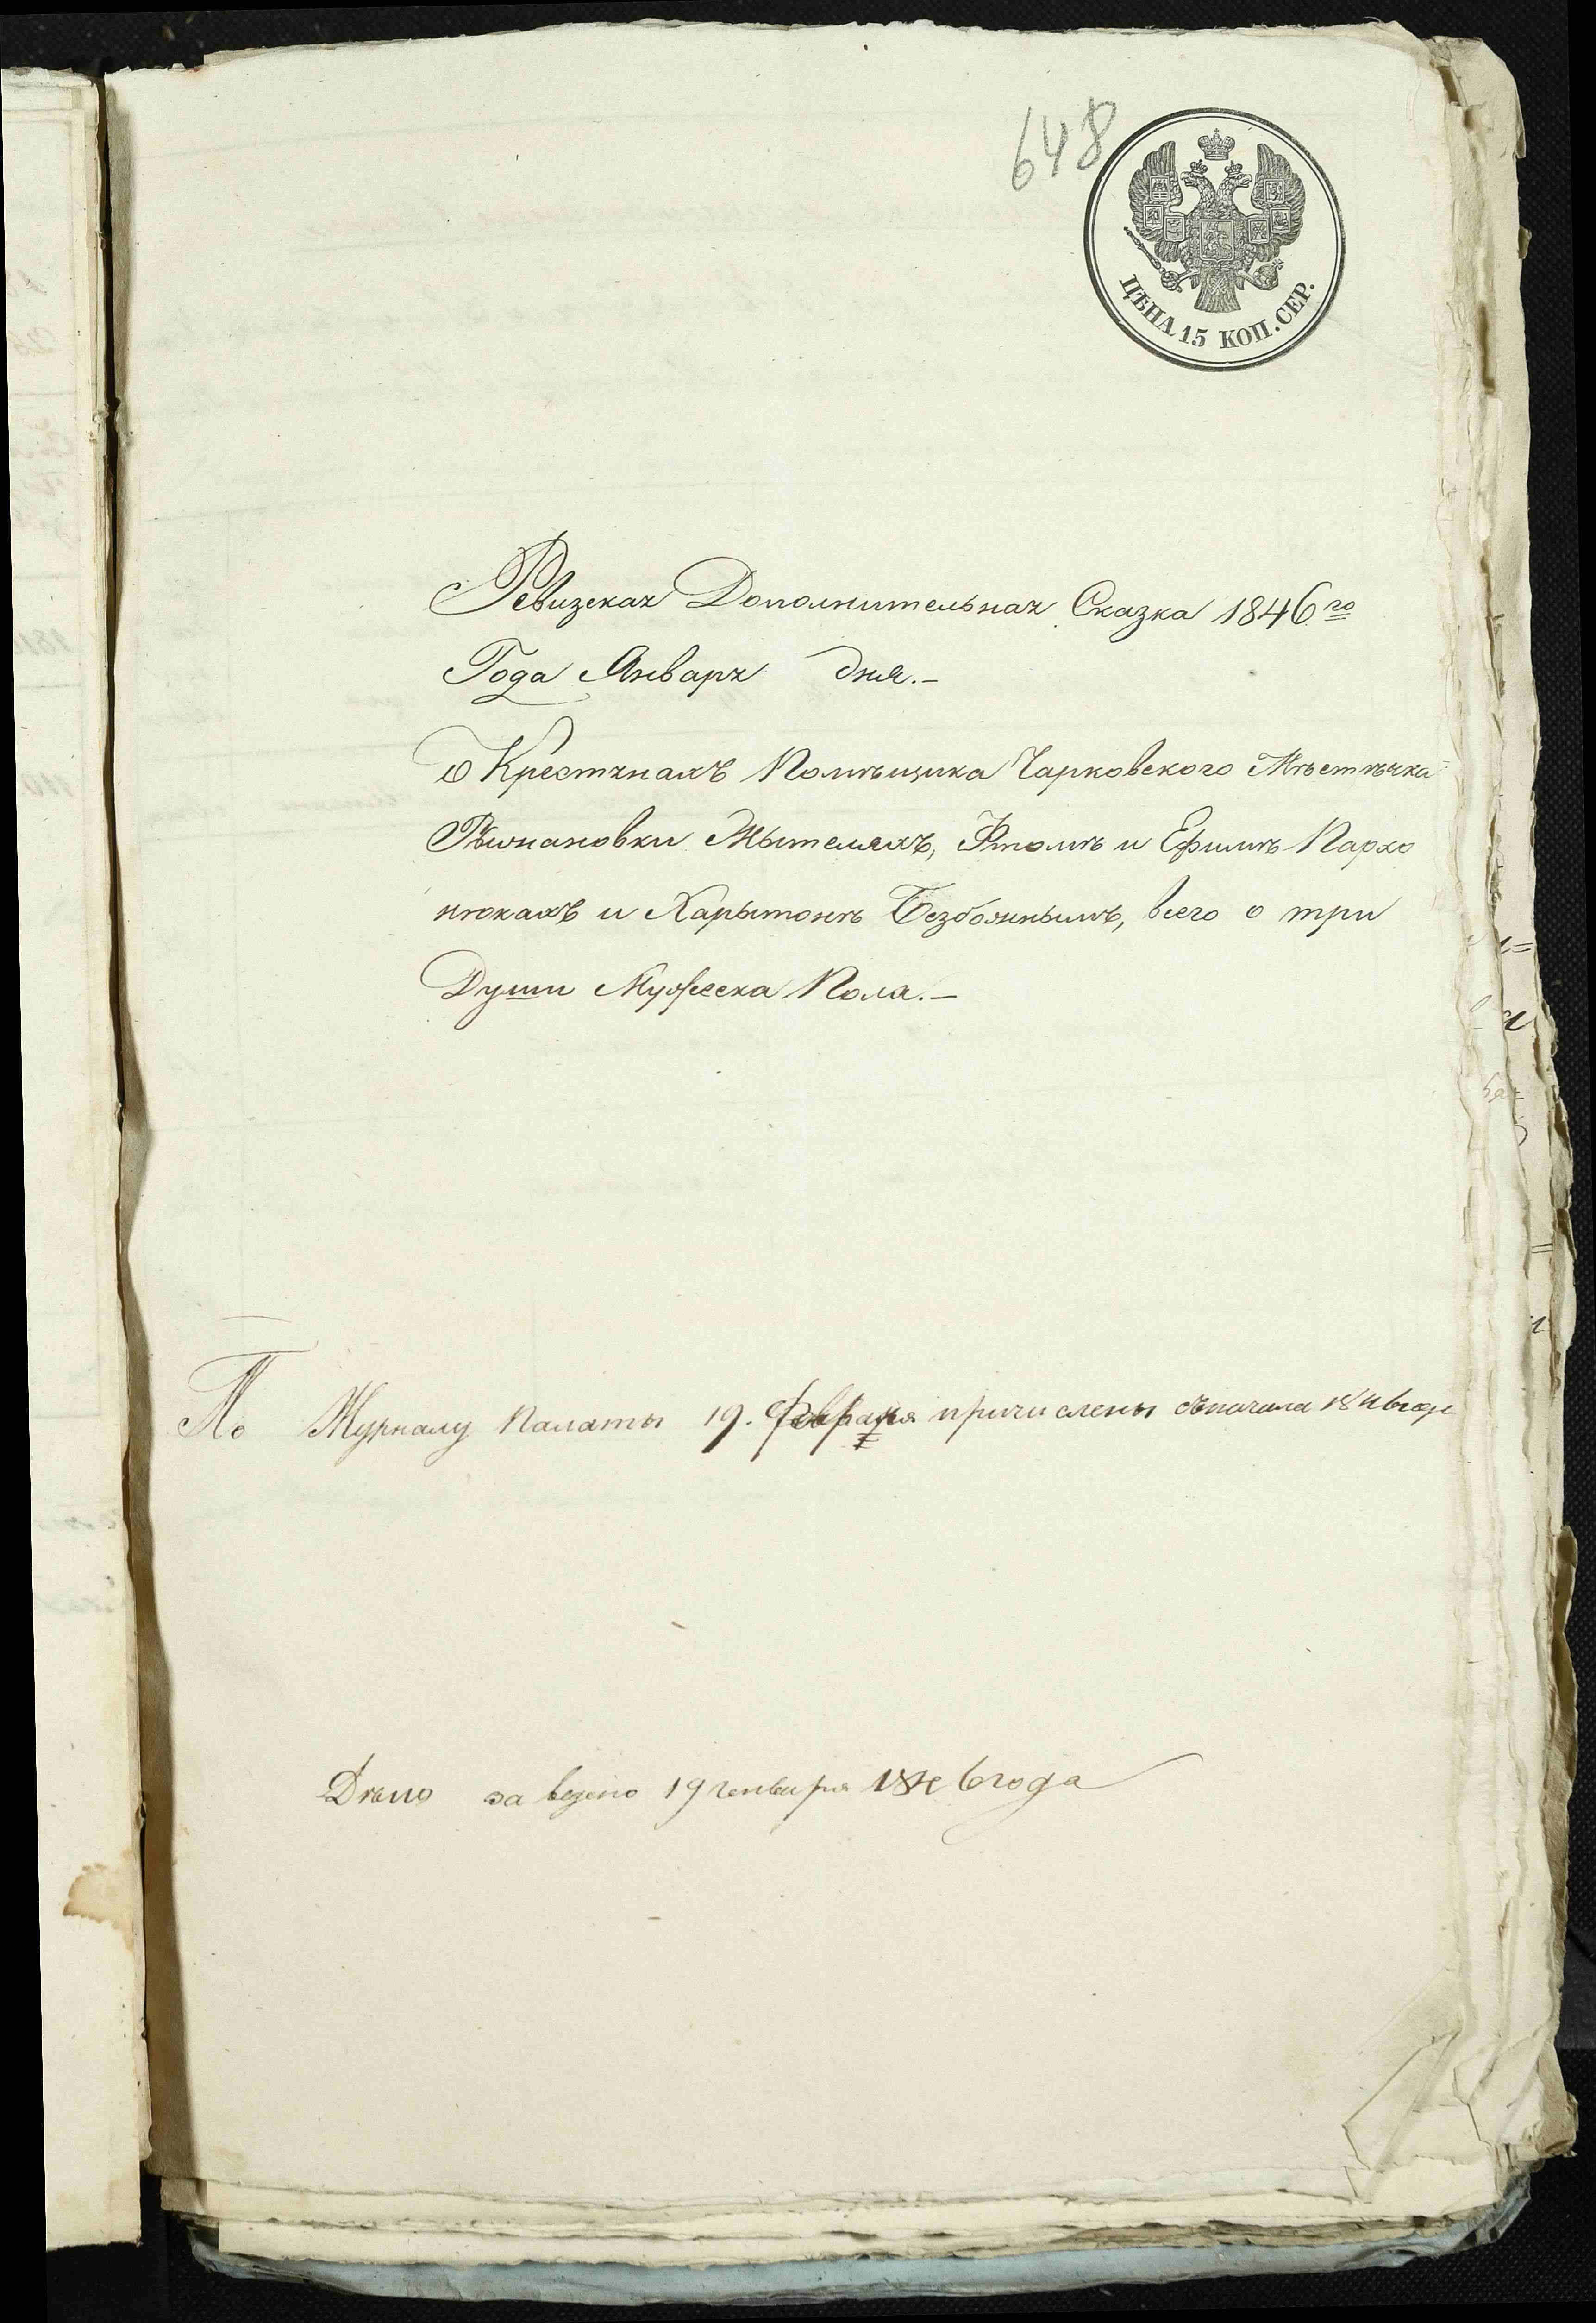 648
ЦѢНА 15 КОП. СЕР.
Ревизская Дополнительная Сказка 1846го
Года Января дня.-
О Крестянахъ Помѣщика Чарковского Мѣстѣчка
Жытеляхъ, и Ефимѣ Пархо
нюкахъ и Харытонѣ Безбожнымъ, всего о три
Души Мужеска Пола.-
По Журналу Палаты 19. Февраля причислены съ начала 1846 года
Дѣло заведено 19 генваря 1846 года